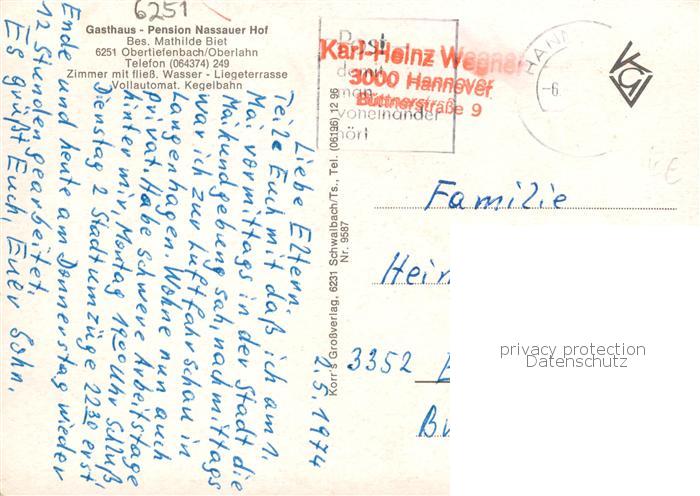 6251
Gasthaus - Pension Nassauer Hof
Bes. Mathilde Biet
6251 Obertiefenbach/Oberlahn
Telefon (064374) 249
Zimmer mit fließ. Wasser - Liegeterrasse
Vollautomat. Kegelbahn
2.5.1974
Liebe Eltern.
Teile Euch mit daß ich am 1.
Mai vormittags in der Stadt die
Maikundgebung sah, nachmittags
war ich zur Luftfahrschau in
Langenhagen. Wohne nun auch
privat. Habe schwere Arbeitstage
hinter mir, Montag 1900 Uhr Schluß,
Dienstag 2 Stadtumzüge 2230 erst
Ende und heute am Donnerstag wieder
12 Stunden gearbeitet.
Es grüßt Euch, Euer Sohn.
Korr's Großverlag, 6231 Schwalbach/Ts., Tel. (06196) 12 96
Nr. 9587
Post
damit
man
voneinander
hört
Karl-Heinz Wegner
3000 Hannover
Büttnerstraße 9
HANN
-6.
KGV
Familie
Hein
3352
privacy protection
Datenschutz